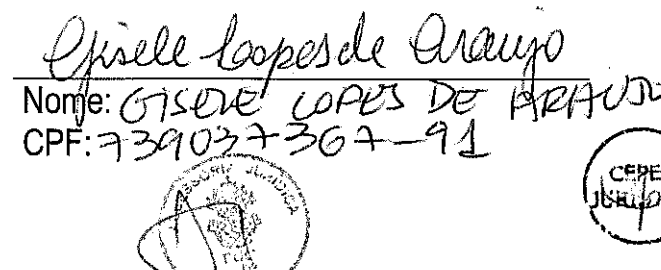 Gisele Lopes de Araujo
Nome: GISELE LOPES DE ARAUJO
CPF: 739037367-91
ASSESSORIA JURÍDICA
CEPE